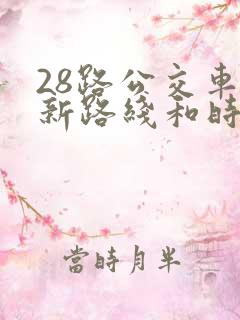 28路公交車
新路綫和時
當時月半